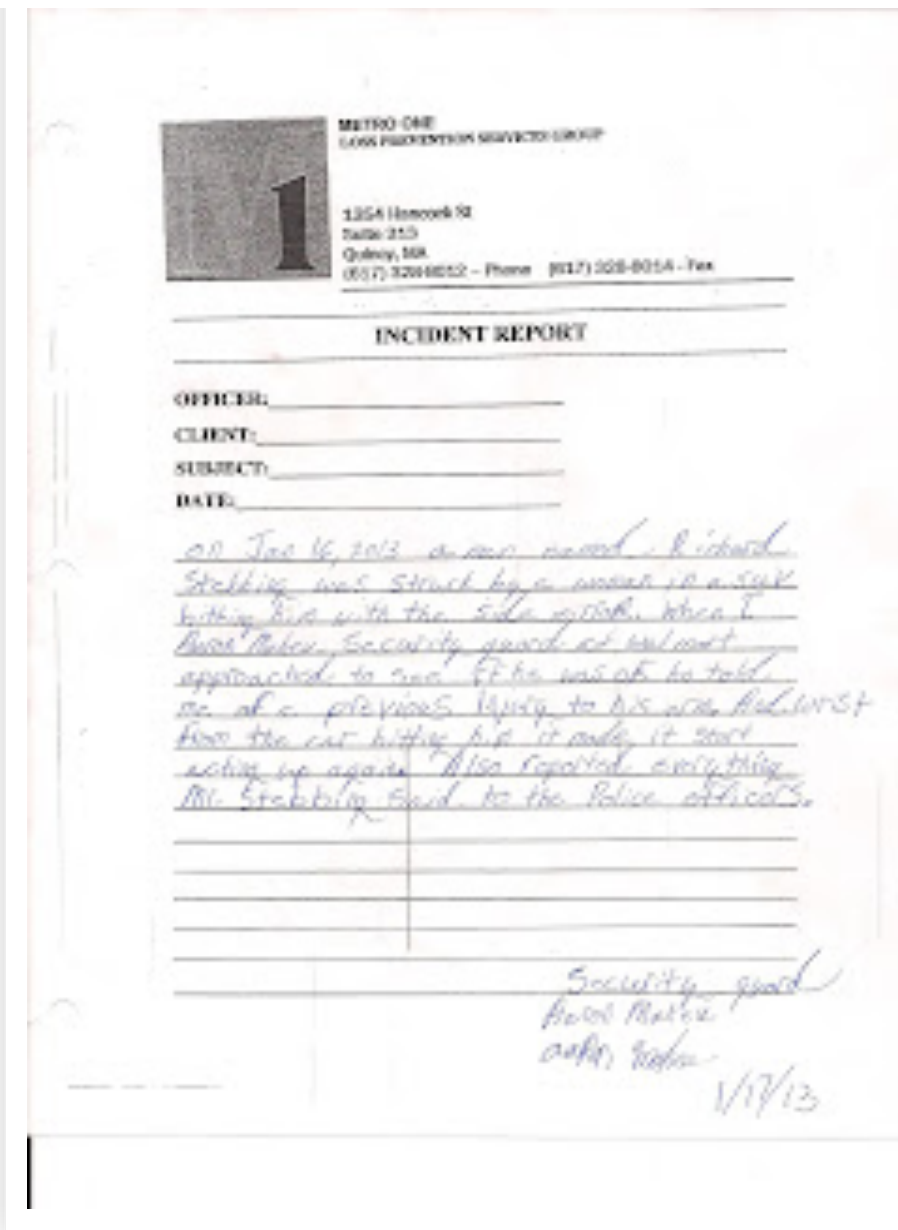 METRO ONE
LOSS PREVENTION SERVICES GROUP
1
1354 Hancock St
Suite 213
Quincy, MA
(617) 328-8012 - Phone (617) 328-8014 - Fax
INCIDENT REPORT
OFFICER:
CLIENT:
SUBJECT:
DATE:
on Jan 16, 2013 a man named Richard
Stebbing was struck by a woman in a SUV
hitting him with the side mirror. When I
Security guard at walmart
approached to see if he was ok he told
me of a previous injury to his and wrist
from the car hitting him it made it start
acting up again. Also reported everything
Mr. Stebbing said to the Police officers.
Security guard
1/17/13